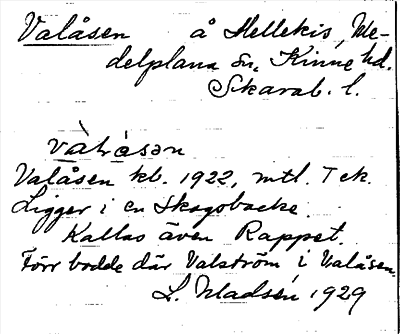 Valåsen å Hellekis, Me-
delplana sn, Kinne hd.
Skarab. l.
Valåsen kb. 1922, mtl. T ek.
Ligger i en Skogsbacke.
Kallas även Rappet.
Förr bodde där Valström i Valåsen.
L. Madsén 1929